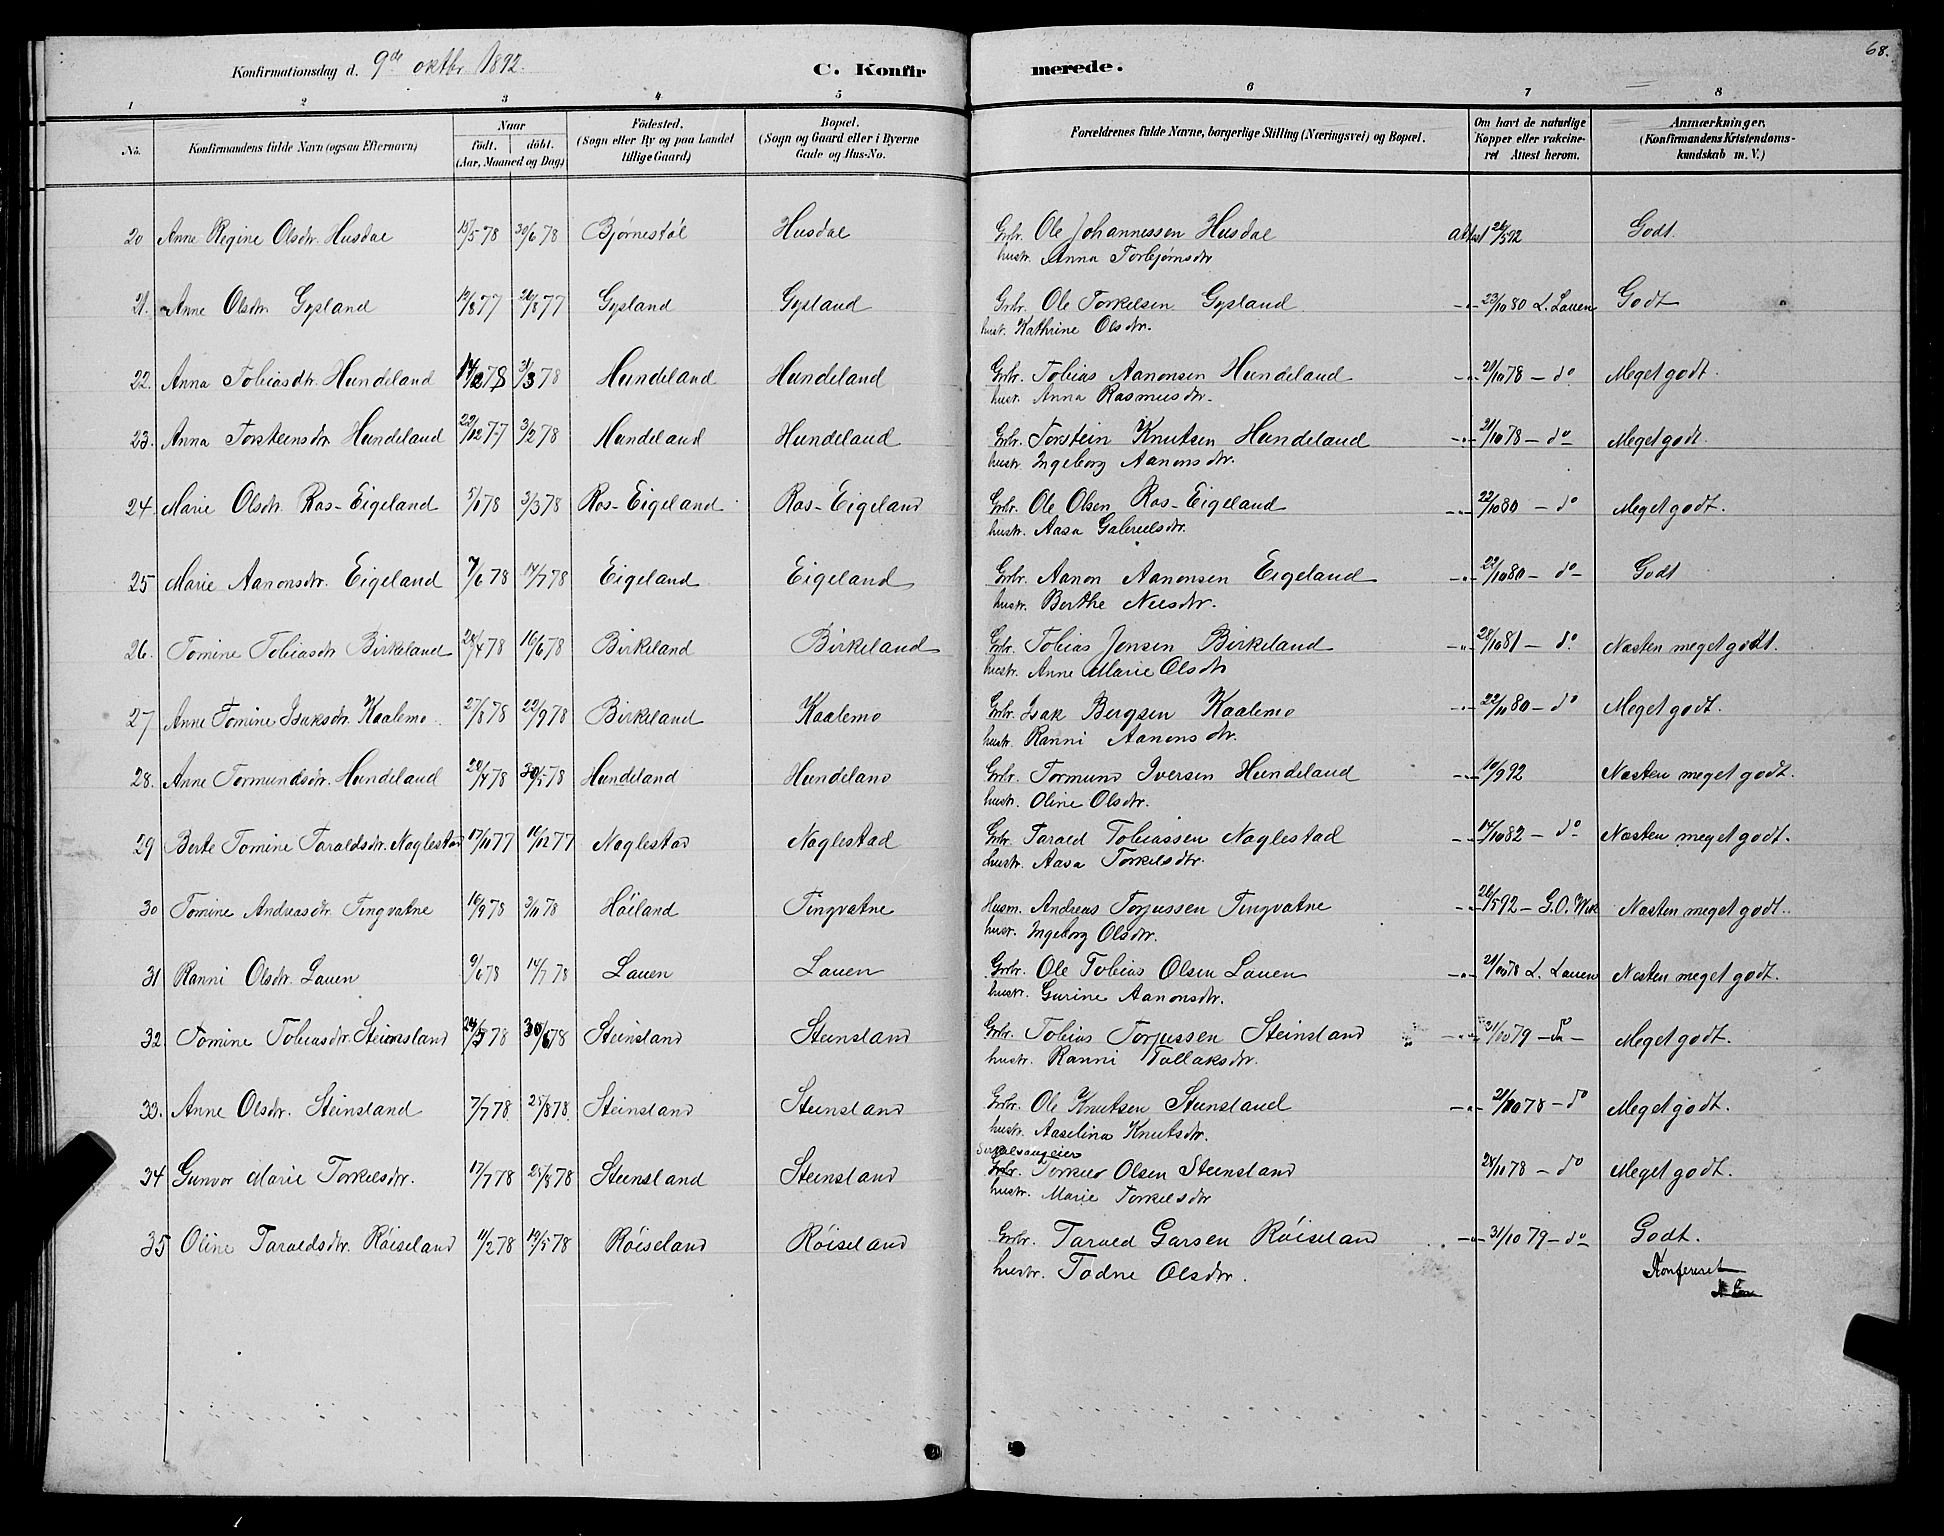 68.
Konfirmationsdag d. 9de oktbr. 1892.
C. Konfirmerede.
1 2 3 4 5 6 7 8
No. Konfirmandens fulde Navn (ogsaa Efternavn) Naar födt. döbt. (Aar, Maaned og Dag) Födested. (Sogn eller By og paa Landet tillige Gaard) Bopæl. (Sogn og Gaard eller i Byerne Gade og Hus-No. Forældrenes fulde Navne, borgerlige Stilling (Næringsvei) og Bopæl. Om havt de naturlige Kopper eller vakcineret Attest herom. Anmærkninger. (Konfirmandens Kristendomskundskab m. V.)
20 Anne Regine Olsdtr. Husdal 15/5 78 30/6 78 Bjørnestøl Husdal Grbr. Ole Johannessen Husdal Attest 24/5 92 Godt.
hustr. Anna Torbjørnsdtr
21. Anne Olsdtr Gysland 19/8 77 26/8 77 Gysland Gysland Grbr. Ole Torkelsen Gysland -"- 23/10 80 L. Lauen Godt
hust. Kathrine Olsdtr.
22. Anna Tobiasdtr. Hundeland 14/2 78 31/3 78 Hundeland Hundeland Grbr. Tobias Aanonsen Hundeland -"- 21/10 78 - do Meget godt.
hust. Anna Rasmusdtr.
23. Anna Torsteinsdtr. Hundeland 22/12 77 3/2 78 Hundeland Hundeland Grbr. Torstein Knutsen Hundeland -"- 21/10 78 - do Meget godt.
hustr. Ingeborg Aanonsdtr.
24. Marie Olsdtr. Ros-Eigeland 5/1 78 3/3 78 Ros-Eigeland Ros-Eigeland Grbr. Ole Olsen Ros-Eigeland -"- 22/10 80 - do Meget godt.
hustr. Aasa Gabrielsdtr.
25 Marie Aanonsdtr. Eigeland 7/6 78 14/7 78 Eigeland Eigeland Grbr. Aanon Aanonsen Eigeland -"- 22/10 80 - do - Godt
hustr. Berthe Nilsdtr.
26. Tomine Tobiasdtr Birkeland 28/4 78 16/6 78 Birkeland Birkeland Grbr. Tobias Jensen Birkeland -"- 28/10 81 - do. Næsten meget godt.
hustr. Anne Marie Olsdtr
27 Anne Tomine Isaksdtr. Kaalemo. 27/8 78 22/9 78 Birkeland Kaalemo Grbr. Isak Bergsen Kaalemo -"- 22/10 80 - do Meget godt.
hustr. Ranni Aanonsdtr.
28. Anne Tormundsdtr. Hundeland 20/4 78 30/5 78 Hundeland Hundeland Grbr. Tormund Iversen Hundeland -"- 10/9 92 Næsten meget godt.
hustr. Oline Olsdtr.
29 Berte Tomine Taraldsdtr. Noglestad 17/11 77 16/12 77 Noglestad Noglestad Grbr. Tarald Tobiassen Noglestad -"- 14/10 82 - do Næsten meget godt.
hustr. Aasa Torkelsdtr.
30 Tomine Andreasdtr. Tingvatne 16/9 78 3/11 78 Höiland Tingvatne Husm. Andreas Torjussen Tingvatne -"- 26/5 92 - G.O. Næsten meget godt.
hustr. Ingeborg Olsdtr.
31 Ranni Olsdtr. Lauen 9/6 78 14/7 78 Lauen Lauen Grbr. Ole Tobias Olsen Lauen -"- 21/10 78 L. Lauen Næsten meget godt.
hustr. Gurine Aanonsdtr.
32 Tomine Tobiasdtr. Steinsland 24/5 78 30/6 78 Steinsland Steinsland Grbr. Tobias Torjussen Steinsland -"- 31/10 79 - do - Meget godt.
hustr. Ranni Tallaksdtr.
33. Anne Olsdtr. Steinsland 7/7 78 25/8 78. Steinsland Steinsland Grbr. Ole Knutsen Steinsland -"- 21/10 78 - do Meget godt.
hustr. Aaselina Knutsdtr.
34 Gunvor Marie Torkelsdtr. 17/7 78 25/8 78 Steinsland Steinsland Grbr. Torkild Olsen Steinsland 24/10 78 - do Meget godt.
hustr. Marie Torkelsdtr
35 Oline Taraldsdtr. Röiseland 11/2 78 19/5 78 Röiseland Röiseland Grbr. Tarald Garsen Röiseland -"- 31/10 79 - do Godt.
hustr. Todne Olsdtr.
Konfereret